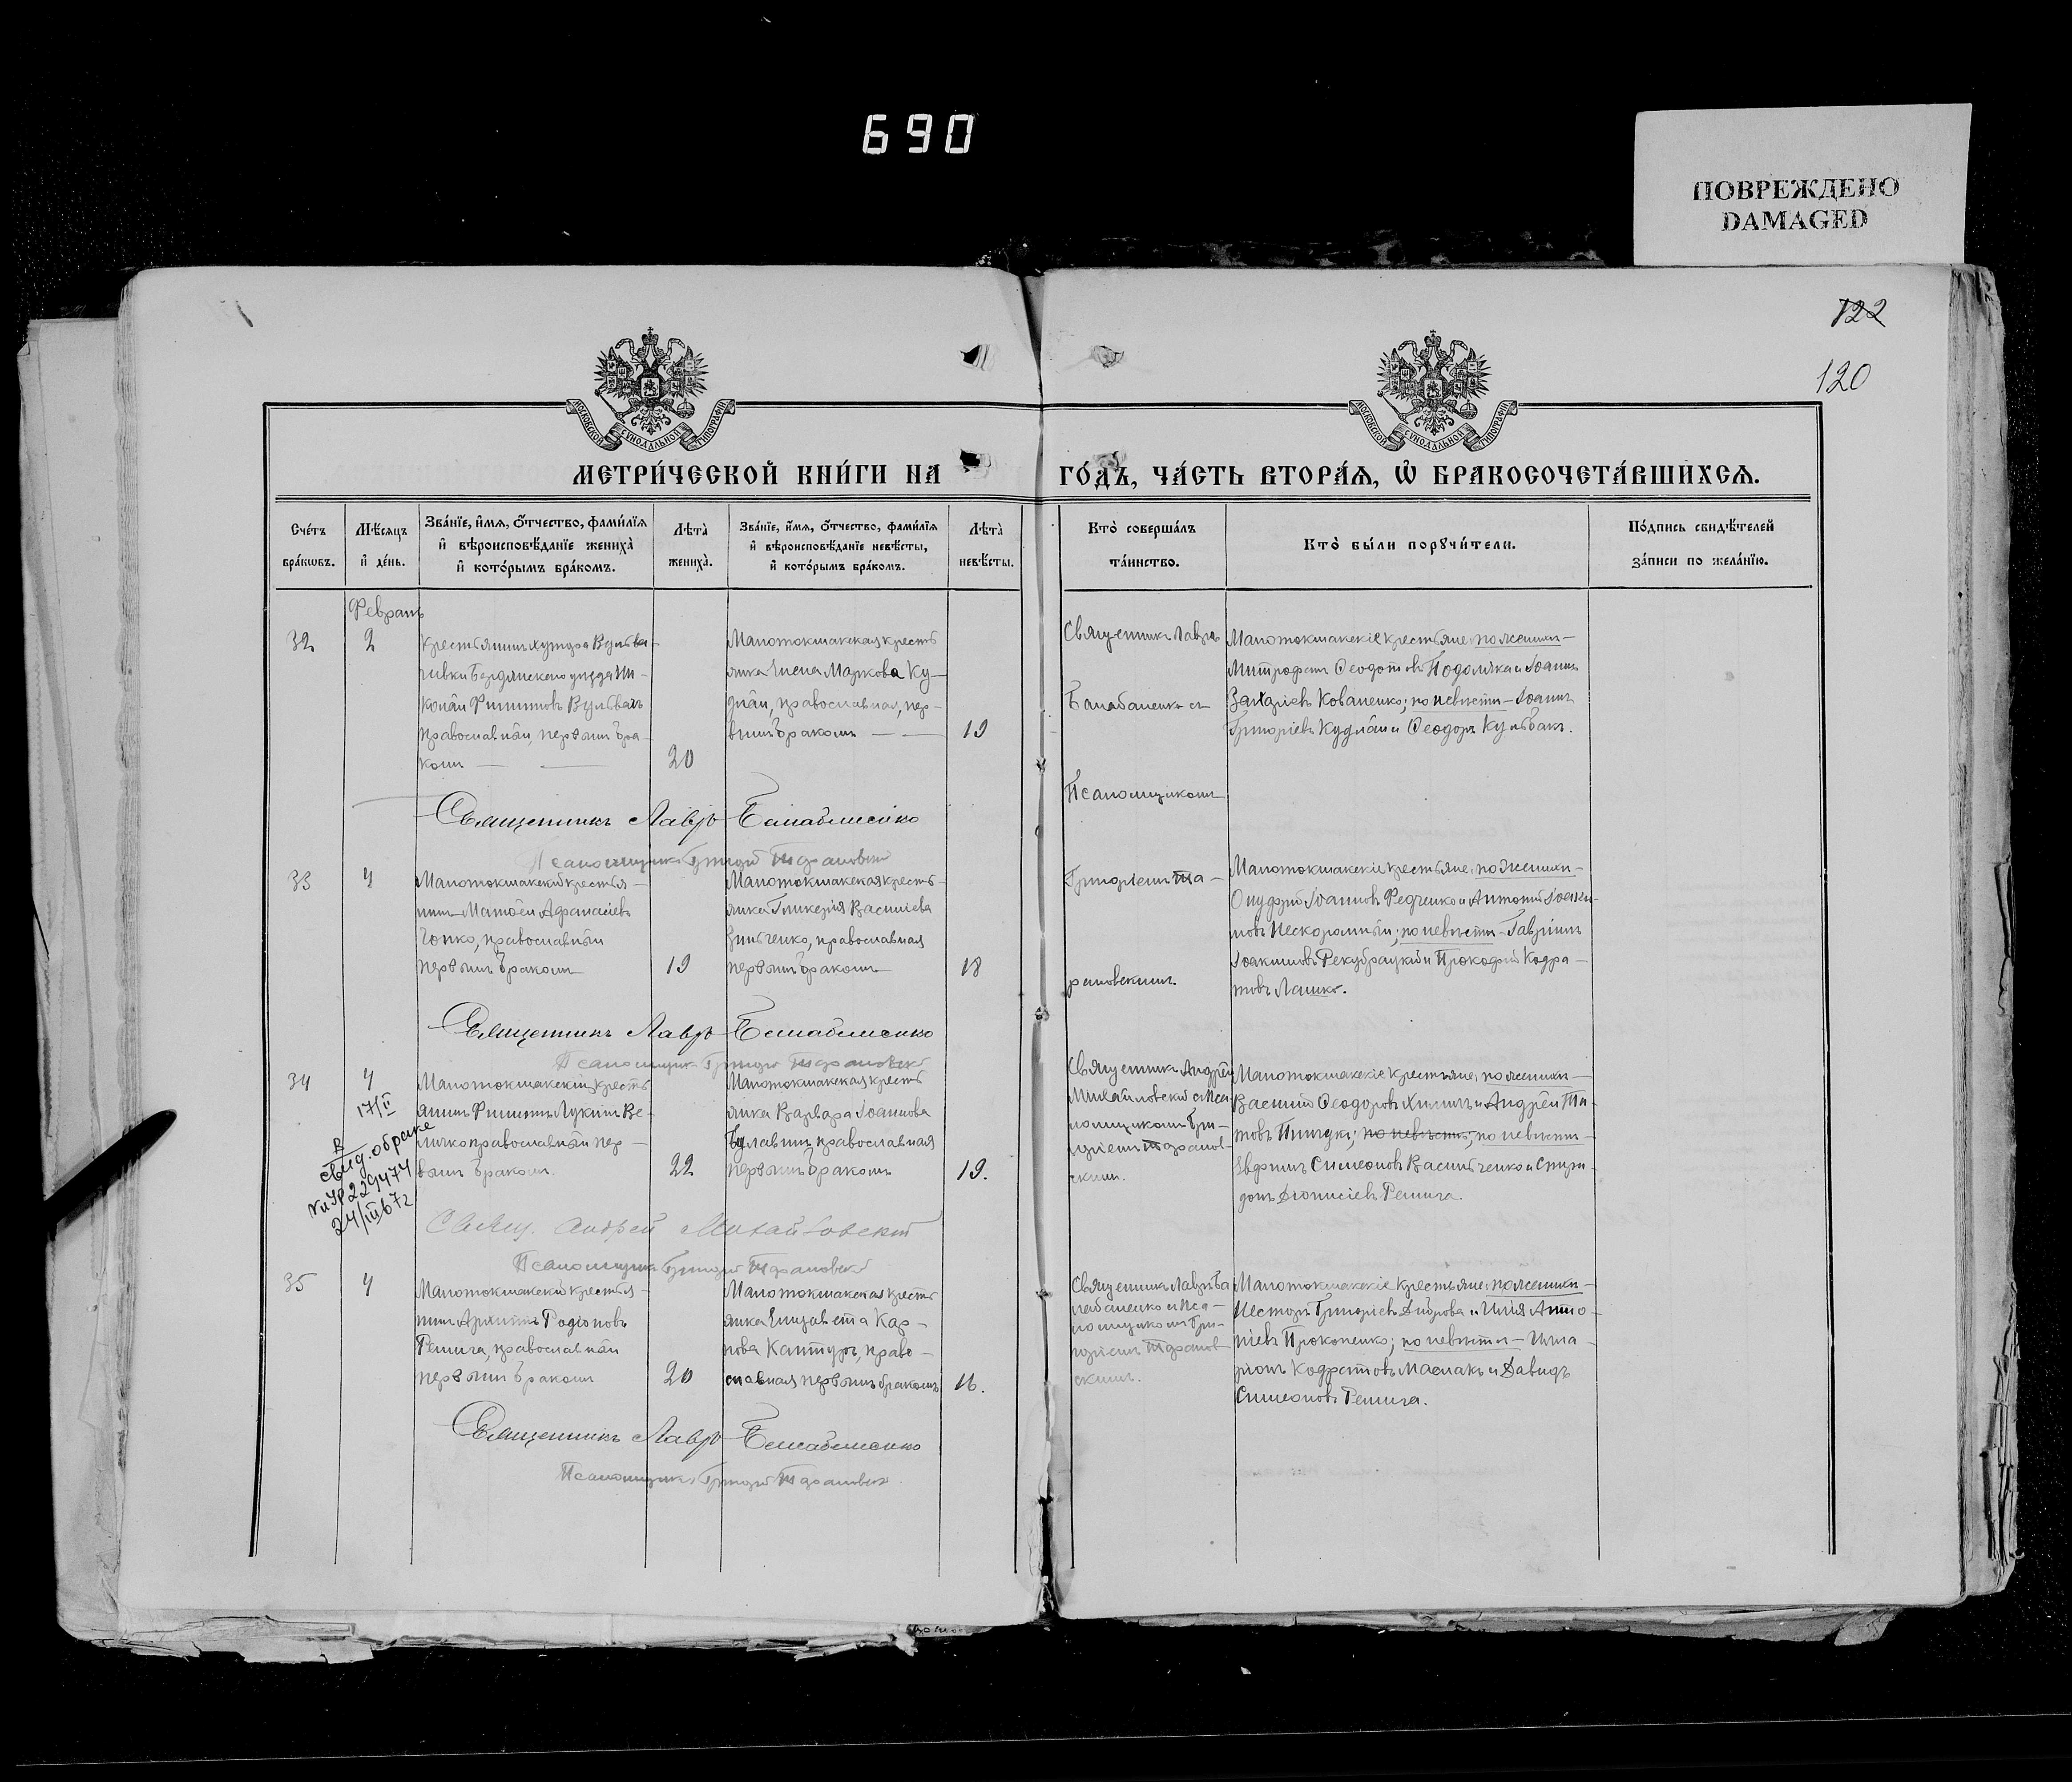 690
ПОВРЕЖДЕНО
DAMAGED
122
120
МОСКОВСКОЙ СѴНОДАЛЬНОЙ ТИПОГРАФІИ
МОСКОВСКОЙ СѴНОДАЛЬНОЙ ТИПОГРАФІИ
МЕТРИ́ЧЕСКОЙ КНИ́ГИ НА ГО́ДЪ, ЧА́СТЬ ВТОРА́Я, Ѽ БРАКОСОЧЕТА́ВШИХСЯ.
Сче́тъ бра́кѡвъ.
Мѣ́сяцъ и҆ де́нь.
Зва́нїе, и҆́мя, ѻ҆́тчество, фами́лїя
и҆ вѣроисповѣ́данїе жениха̀
и҆ кото́рымъ бра́комъ.
Лѣта̀ жениха̀.
Зва́нїе, и҆́мя, ѻ҆́тчество, фами́лїя
и҆ вѣроисповѣ́данїе невѣ́сты,
и҆ кото́рымъ бра́комъ.
Лѣта̀ невѣ́сты.
Кто̀ соверша́лъ та́инство.
Кто̀ бы́ли порꙋчи́тели.
По́дпись свидѣ́телей за́писи по жела́нїю.
Февраль
32
2
Крестьянинъ хутора
Бердянскаго уѣзда Ни-
колай Филиповъ
православный, первымъ бра-
комъ
20
Малотокмакская кресть
янка Елена Маркова Ку-
длай, православная, пер-
вымъ бракомъ
19
Священникъ Лавръ
Балабаненко съ
Псаломщикомъ
Григоріемъ Та-
рановскимъ.
Малотокмакскіе крестьяне, по женихѣ-
Митрофанъ Ѳеодотовъ Подоляка и Іоаннъ
Захаріевъ Коваленко; по невѣстѣ - Іоаннъ
Григоріевъ Кудлай и Ѳеодоръ Кульбакъ.
Священникъ Лавръ Балабаненко
Псаломщикъ Григорій Тарановскій
33
4
Малотокмакскій крестья-
нинъ Матѳей Аѳанасіевъ
православный
первымъ бракомъ
19
Малотокмакская кресть-
янка Гликерія Василіева
Зинченко, православная
первымъ бракомъ
18
Малотокмакскіе крестьяне, по женихѣ-
Онуфрій Іоанновъ Федченко и Антоній Іоанн-
новъ Нескоромный; по невѣстѣ - Гавріилъ
Іоакимовъ и Прокофій Кодра-
товъ Ляшко.
Священникъ Лавръ Балабаненко
Псаломщикъ Григорій Тарановскій
34
4
17/II
В
свид. о браке
24/III 67г
Малотокмакскій кресть
янинъ Филиппъ Лукинъ Ве-
личко православный пер-
вымъ бракомъ.
22
Малотокмакская кресть
янка Варвара Іоаннова
Булавинъ православная
первымъ бракомъ
19.
Священникъ Андрей
Михайловскій съ Пса
ломщикомъ Гри-
горіемъ Таранов-
скимъ.
Малотокмакскіе крестьяне, по женихѣ-
Василій Ѳеодоровъ и Андрей Ти-
товъ; по невѣстѣ, по невѣстѣ-
Евфимъ Симеоновъ Васильченко и Спири-
донъ Діонисіевъ Репига.
Свящ. Андрей Михайловскій
Псаломщикъ Григорій Тарановскій
35
4
Малотокмакскій крестья-
нинъ Архиппъ Родіоновъ
Репига, православный
первымъ бракомъ
20
Малотокмакская кресть
янка Елизавета Кар-
пова Кантуръ, право-
славная первымъ бракомъ
16.
Священникъ Лавръ Ба
лабаненко и Пса-
ломщикомъ Гри-
горіемъ Таранов-
скимъ.
Малотокмакскіе крестьяне, по женихѣ-
Несторъ Григоріевъ Диброва и Илія Анто-
ніевъ Прокопенко; по невѣстѣ - Ила-
ріонъ Кодратовъ Маслакъ и Давидъ
Симеоновъ Репига.
Священникъ Лавръ Балабаненко
Псаломщикъ Григорій Тарановскій